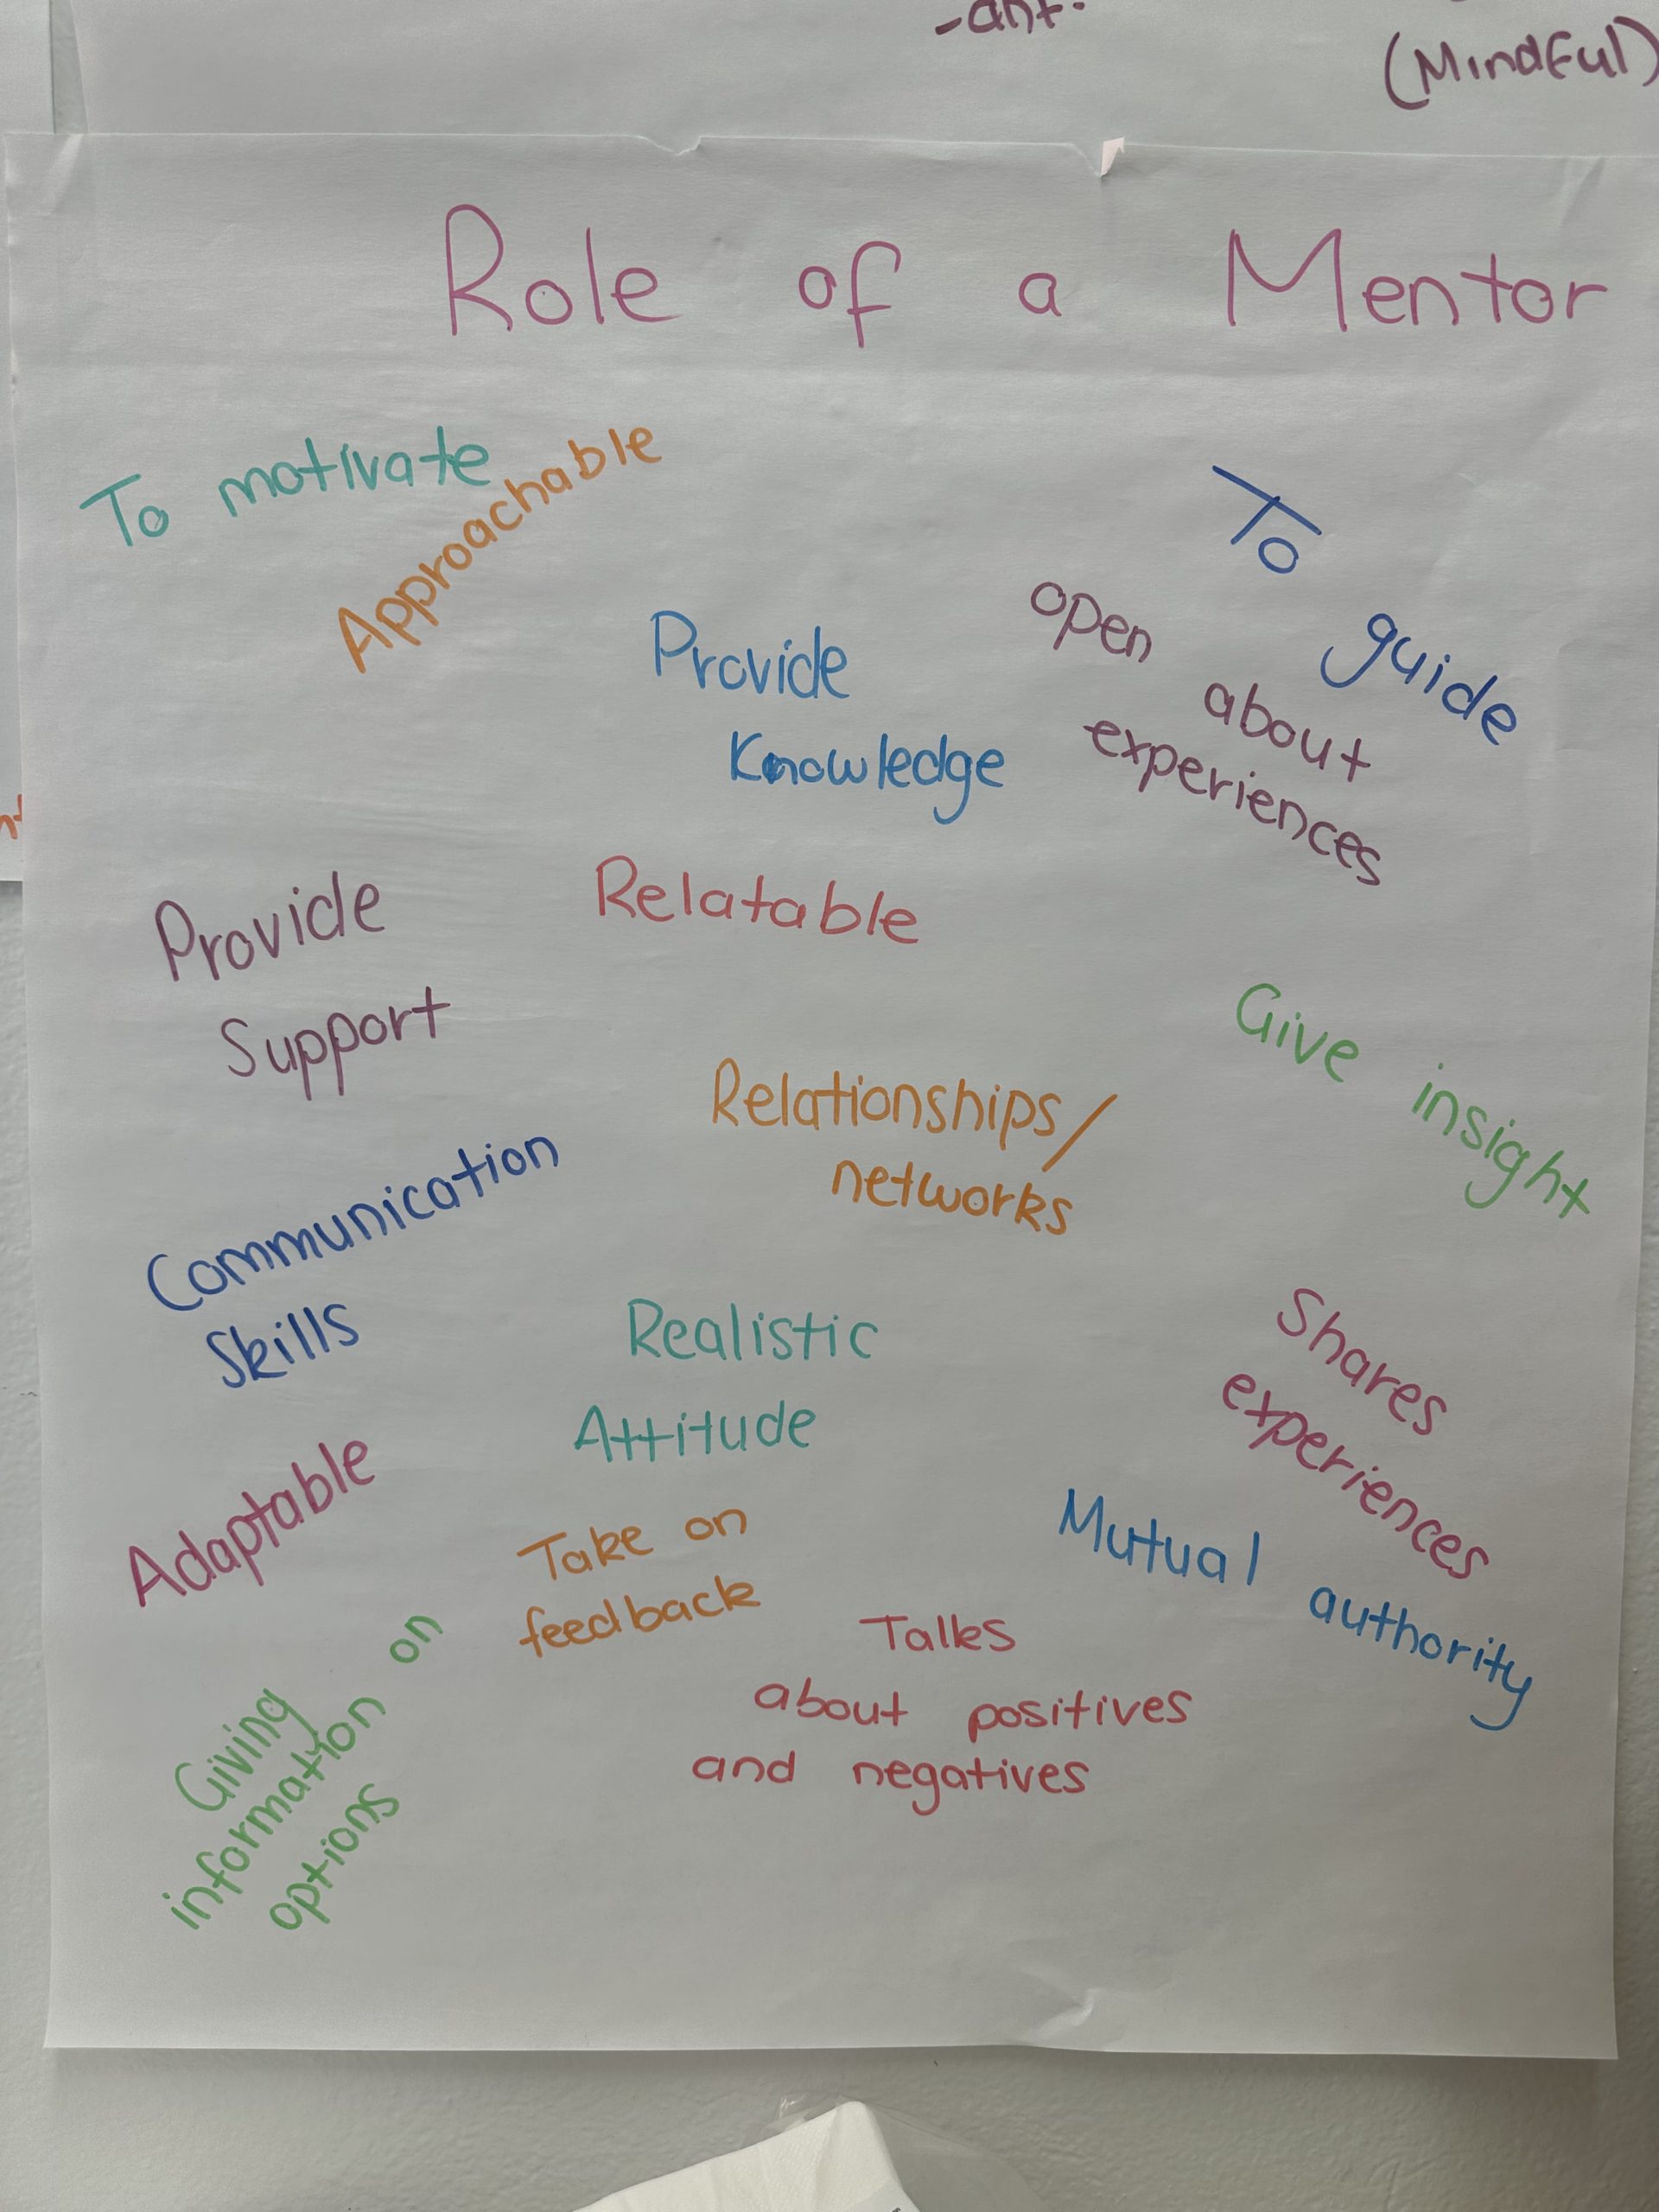 (Mindful)
Role of a Mentor
To motivate
Approachable
To guide
Provide
Knowledge
open about
experiences
Provide
Support
Relatable
Give insight
Relationships/
networks
Communication
Skills
Realistic
Attitude
Shares
experiences
Adaptable
Take on
feedback
Mutual authority
Giving
information on
options
Talks
about positives
and negatives